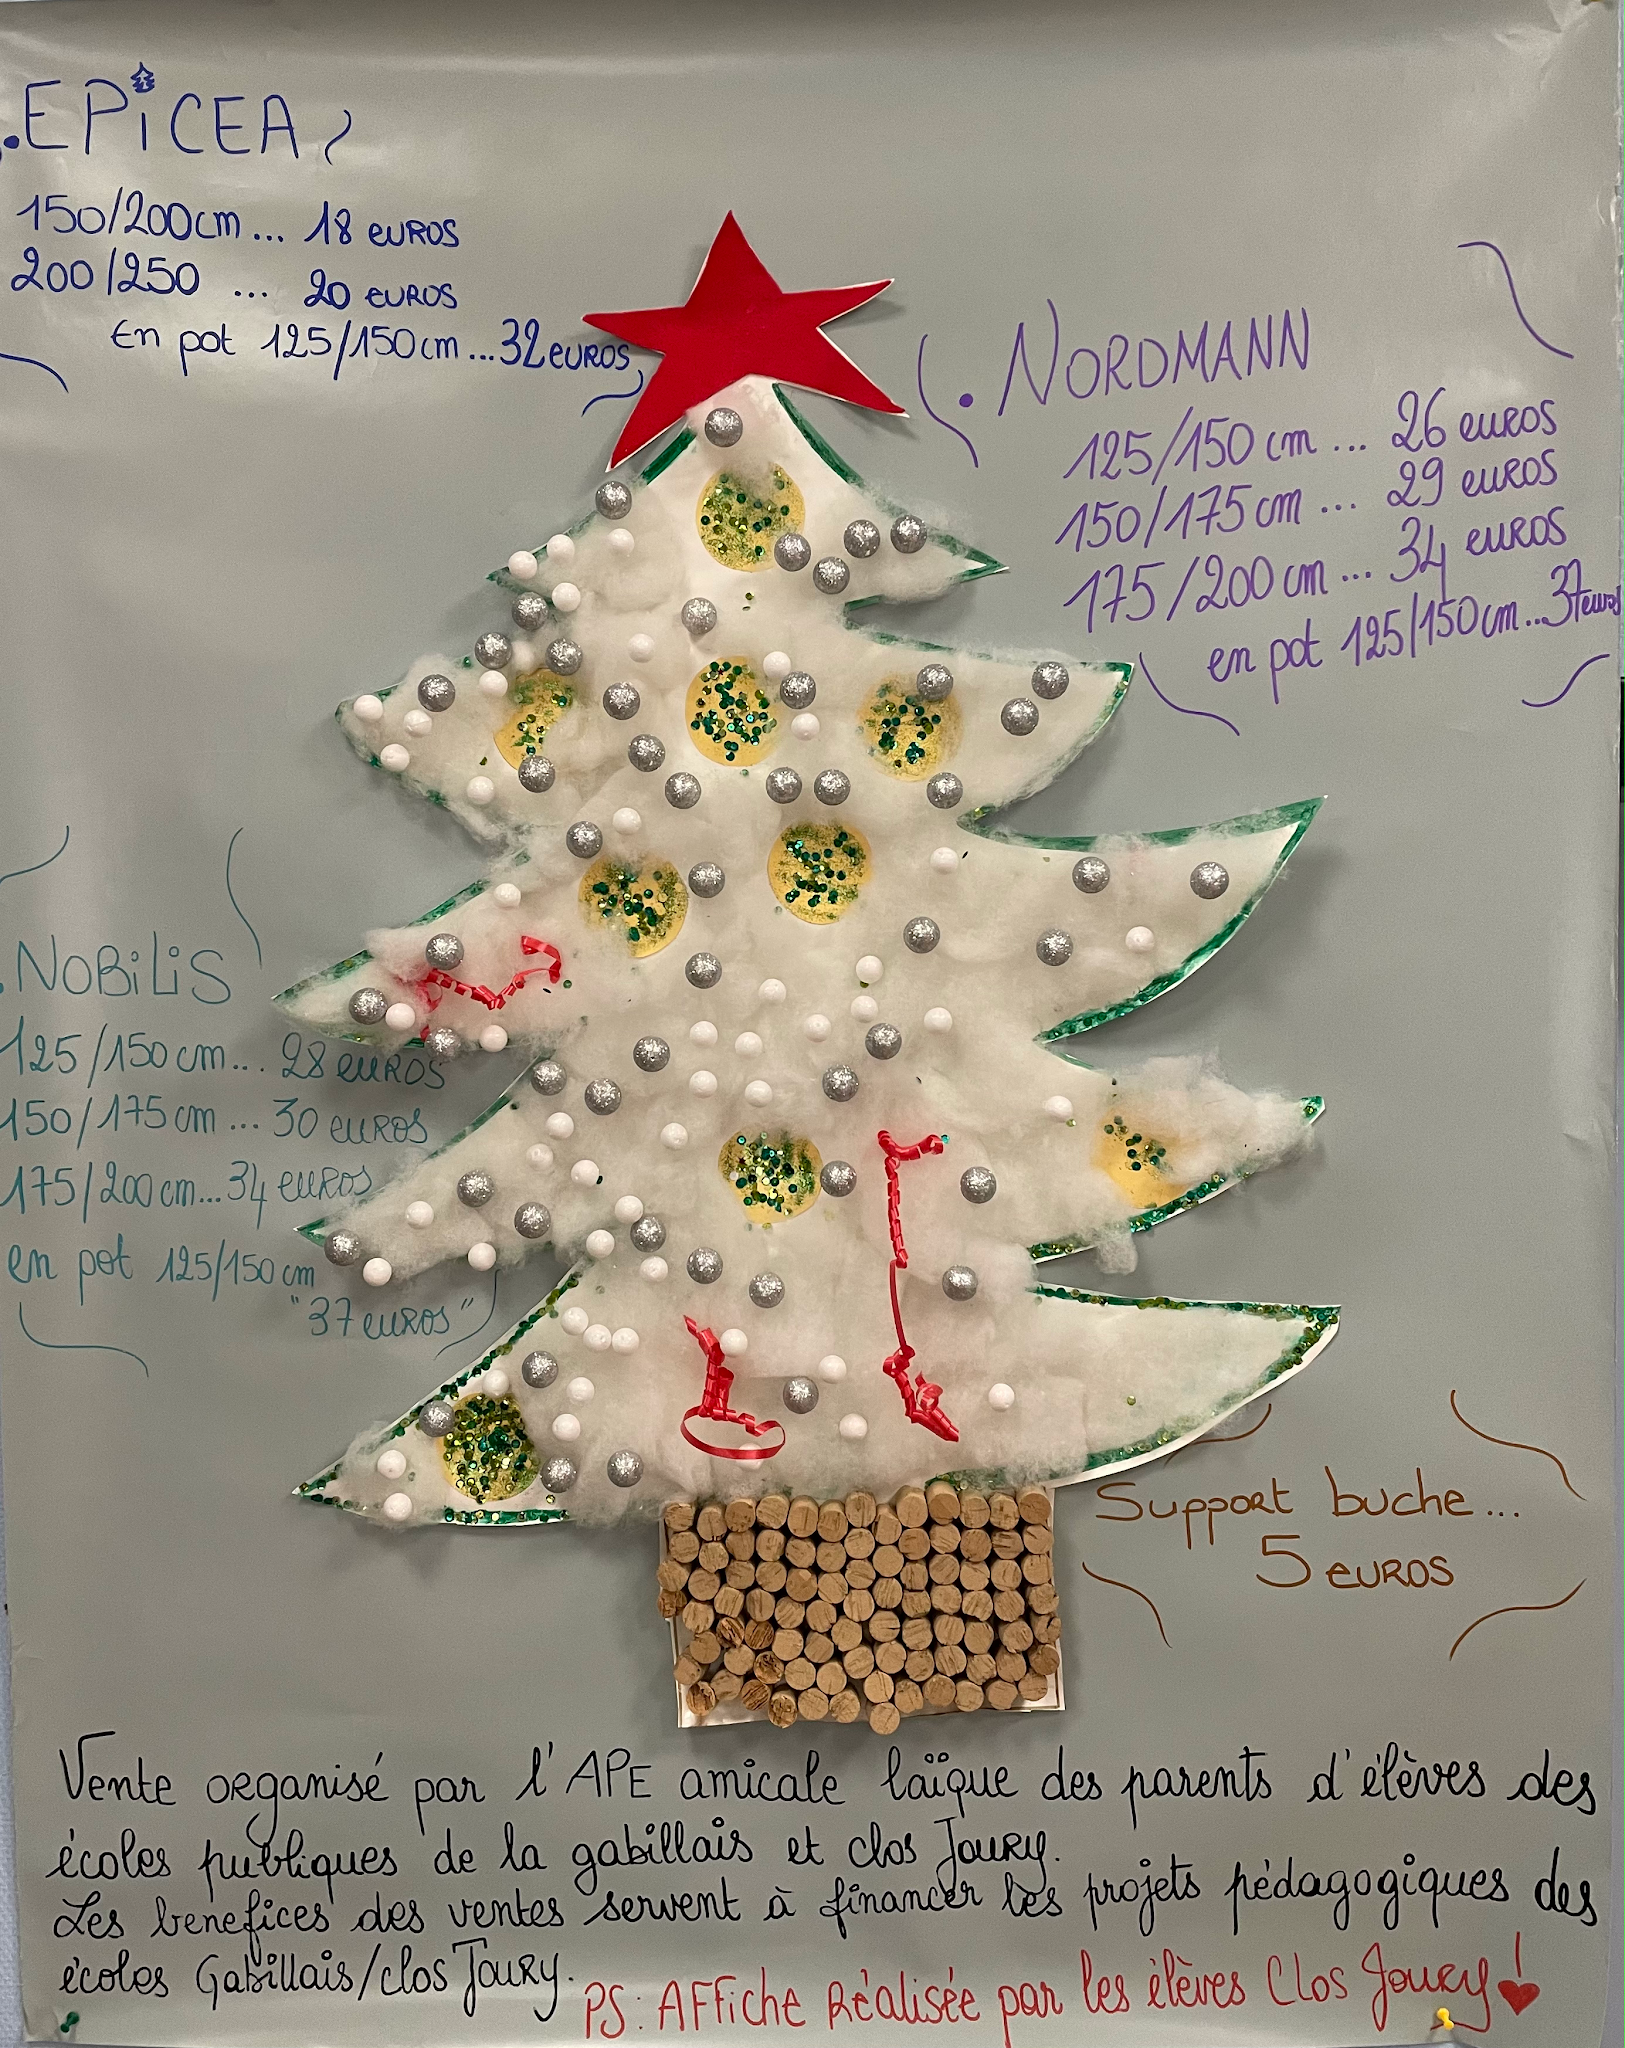 .EPiCEA
150/200cm... 18 EUROS
200/250 ... 20 EUROS
En pot 125/150cm...32 EUROS
. NORDMANN
125/150 cm ... 26 EUROS
150/175 cm ... 29 EUROS
175/200 cm ... 34 EUROS
en pot 125/150cm...37 euros
.NOBiLiS
125/150 cm... 28 EUROS
150/175 cm ... 30 EUROS
175/200 cm...34 EUROS
en pot 125/150 cm
"37 EUROS"
Support buche...
5 EUROS
Vente organisé par l'APE amicale laïque des parents d'élèves des
écoles publiques de la gabillais et clos Joury.
Les benefices des ventes servent à financer les projets pédagogiques des
écoles Gabillais/clos Joury.
PS: AFFiche Réalisée par les élèves Clos Joury!